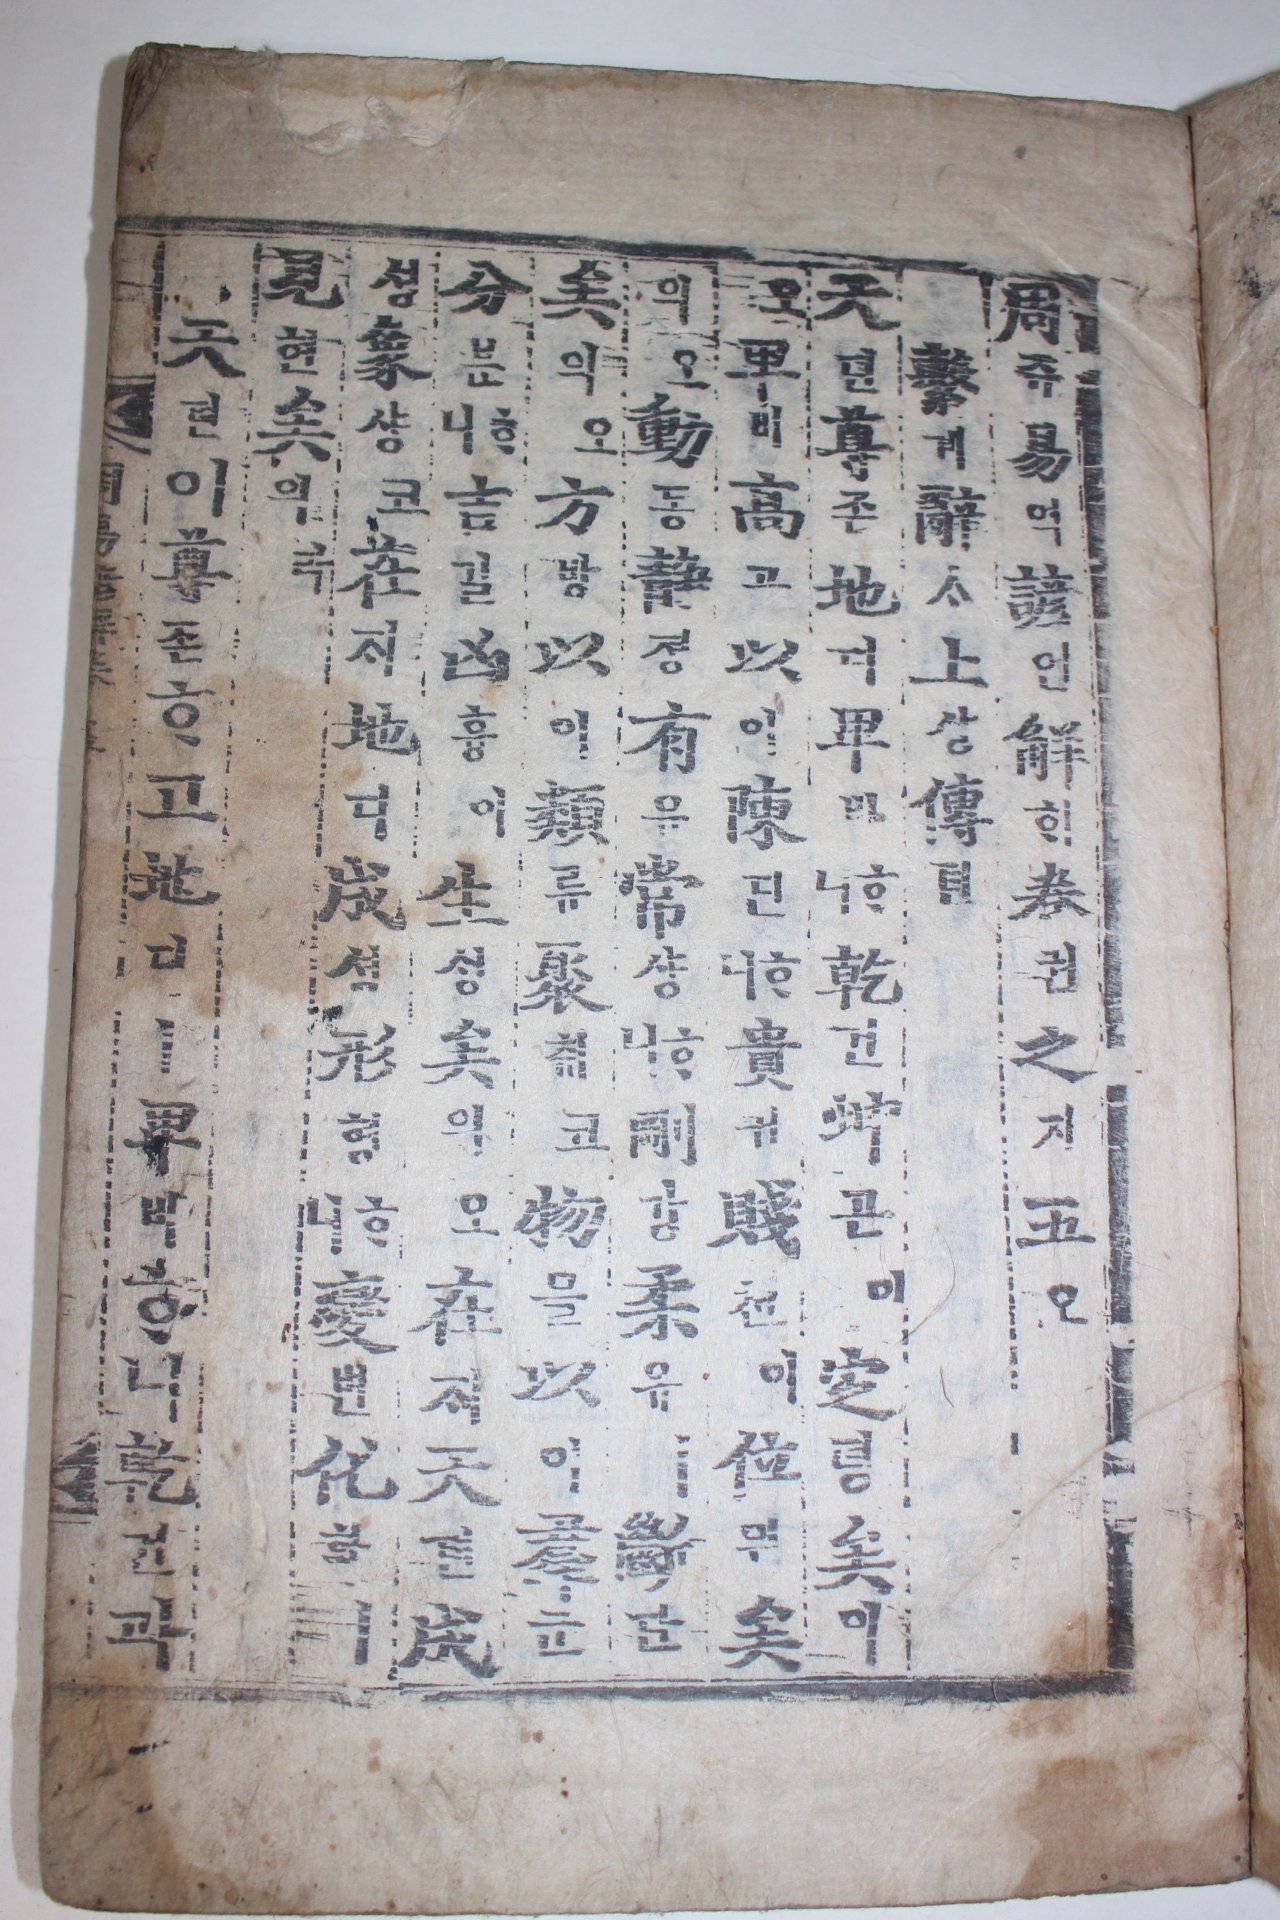 周쥬易역諺언解ᄒᆡ卷권之지五오
繫계辭ᄉᆞ上샹傳뎐
天텬尊존地디卑비ᄒᆞ니乾건坤곤이定뎡矣의
오卑비高고以이陳딘ᄒᆞ니貴귀賤쳔이位위矣
의오動동靜졍有유常샹ᄒᆞ니剛강柔유ㅣ斷단
矣의오方방以이類류聚ᄎᆔ코物믈以이羣군
分분ᄒᆞ니吉길凶흉이生ᄉᆡᆼ矣의오在ᄌᆡ天텬成
셩象샹코在ᄌᆡ地디成셩形형ᄒᆞ니變변化화ㅣ
見현矣의라
天텬이尊존ᄒᆞ고地디ㅣ卑비ᄒᆞ니乾건과